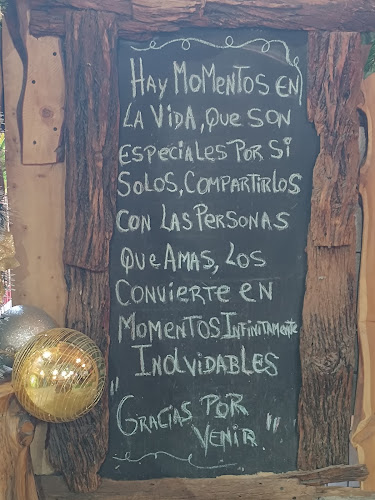 HAY MOMENTOS EN
LA VIDA, QUE SON
ESPECIALES POR SI
SOLOS, COMPARTIRLOS
CON LAS PERSONAS
QUE AMAS, LOS
CONVIERTE EN
MOMENTOS INFINITAMENTE
INOLVIDABLES
"GRACIAS POR
VENIR"